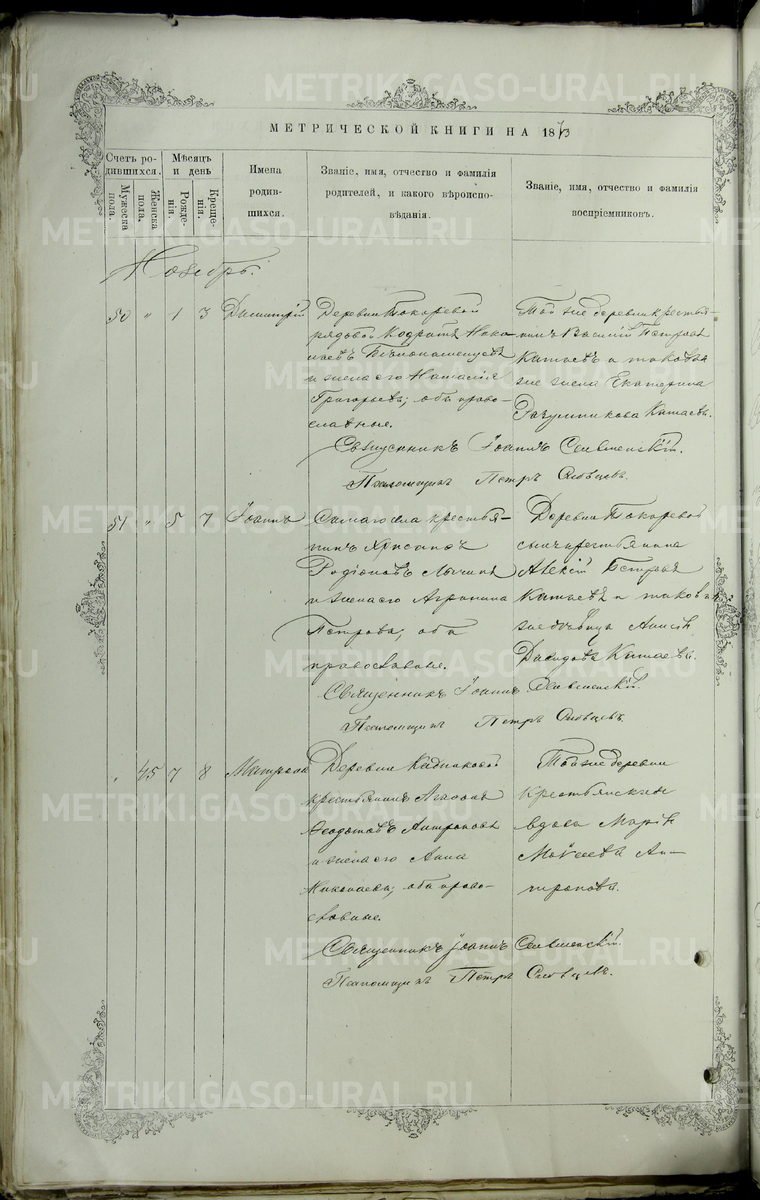 МЕТРИЧЕСКОЙ КНИГИ НА 1873
Счетъ ро-
дившихся.
Мужеска
пола.
Женска
пола.
Мѣсяцъ
и день
Рожде-
нія.
Креще-
нія.
Имена
родив-
шихся.
Званіе, имя, отчество и фамилія
родителей, и какого вѣроиспо-
вѣданія.
Званіе, имя, отчество и фамилія
воспріемниковъ.
Ноябрь.
50 " 1 3 Димитрій
Деревни Токаревой
рядовой Кодратъ
и жена его Наталія
Григорьева; оба право-
славные.
Той же деревни крестья-
нинъ Василій Петровъ
Катаевъ и таковая
же жена Екатерина
Катаева.
Священникъ Іоаннъ
Псаломщикъ Петръ Словцовъ.
51 " 5 7 Іоаннъ
Самаго села крестья-
нинъ
Родіоновъ
и жена его Агрипина
Петрова; оба
православные.
Деревни Токаревой
сынъ крестьянина
Алексій Петровъ
Катаевъ и таковая
же
Давидова Катаева.
Священникъ Іоаннъ
Псаломщикъ Петръ Словцовъ.
" 45 7 8 Матрона
Деревни
крестьянинъ Агафонъ
Феодотовъ Антроповъ
и жена его Анна
Николаева; оба право-
славные.
Той же деревни
Крестьянская
вдова Марія
Моисеева Ан-
тропова.
Священникъ Іоаннъ
Псаломщикъ Петръ Словцовъ.
METRIKI.GASO-URAL.RU